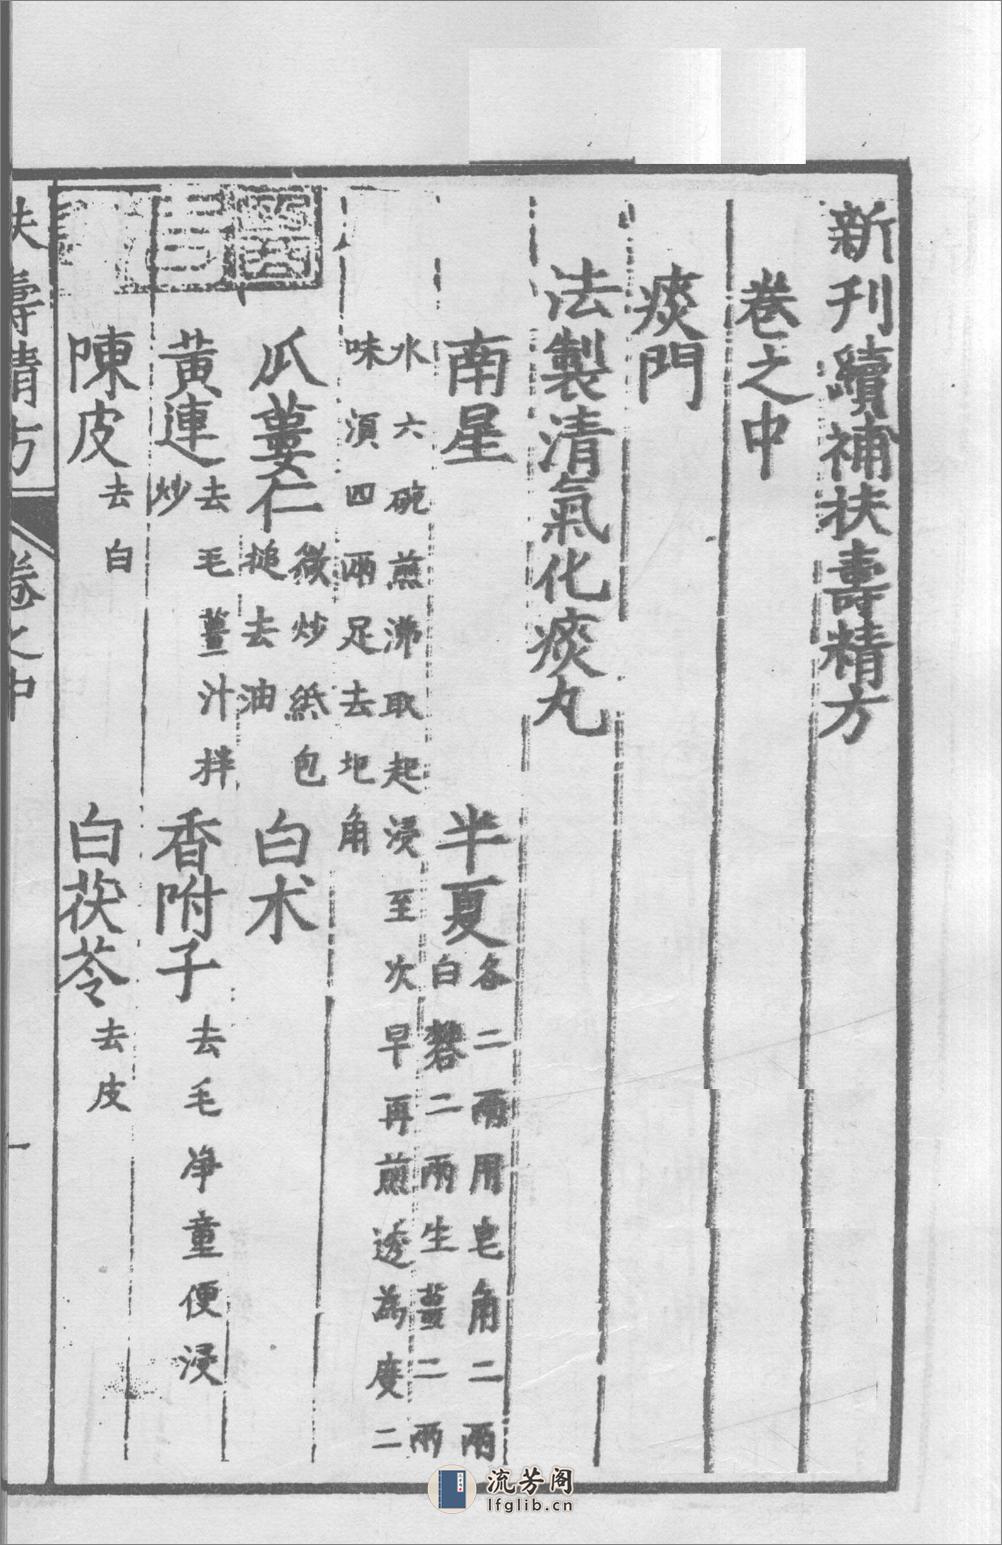 新刋續補扶壽精方
卷之中
痰門
法製清氣化痰丸
南星 半夏各二兩用皂角二兩白礬二兩生薑二兩
水六碗煎沸取起浸至次早再煎透為度二味湏四兩足去圯角
瓜蔞仁微炒紙包搥去油 白术
黃連去毛薑汁拌炒 香附子去毛净童便浸
陳皮去白 白茯苓去皮
扶壽精方 卷之中 一
流芳阁
lfglib.cn